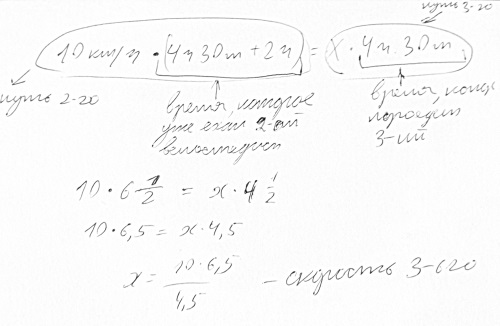 путь 3-го
10 км/ч • (4ч 30м + 2ч) = x • 4ч 30м
путь 2-го
время, которое
уже ехал 2-ой
велосипедист
время, когда
проедет
3-ий
10 • 6 1/2 = x • 4 1/2
10 • 6,5 = x • 4,5
x = 10 • 6,5 / 4,5 – скорость 3-его